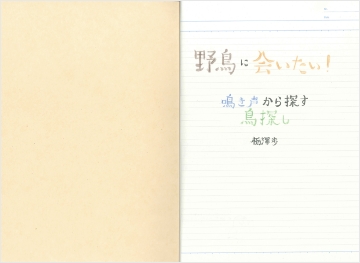 野鳥に会いたい!
鳴き声から探す
鳥探し